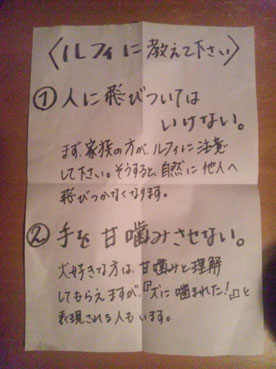 〈ルフィに教えて下さい〉
① 人に飛びついては
いけない。
まず、家族の方が、ルフィに注意
して下さい。そうすると、自然に他人へ
飛びつかなくなります。
② 手を甘噛みさせない。
犬好きな方は、甘噛みと理解
してもらえますが、『犬に噛まれた!』と
表現される人もいます。